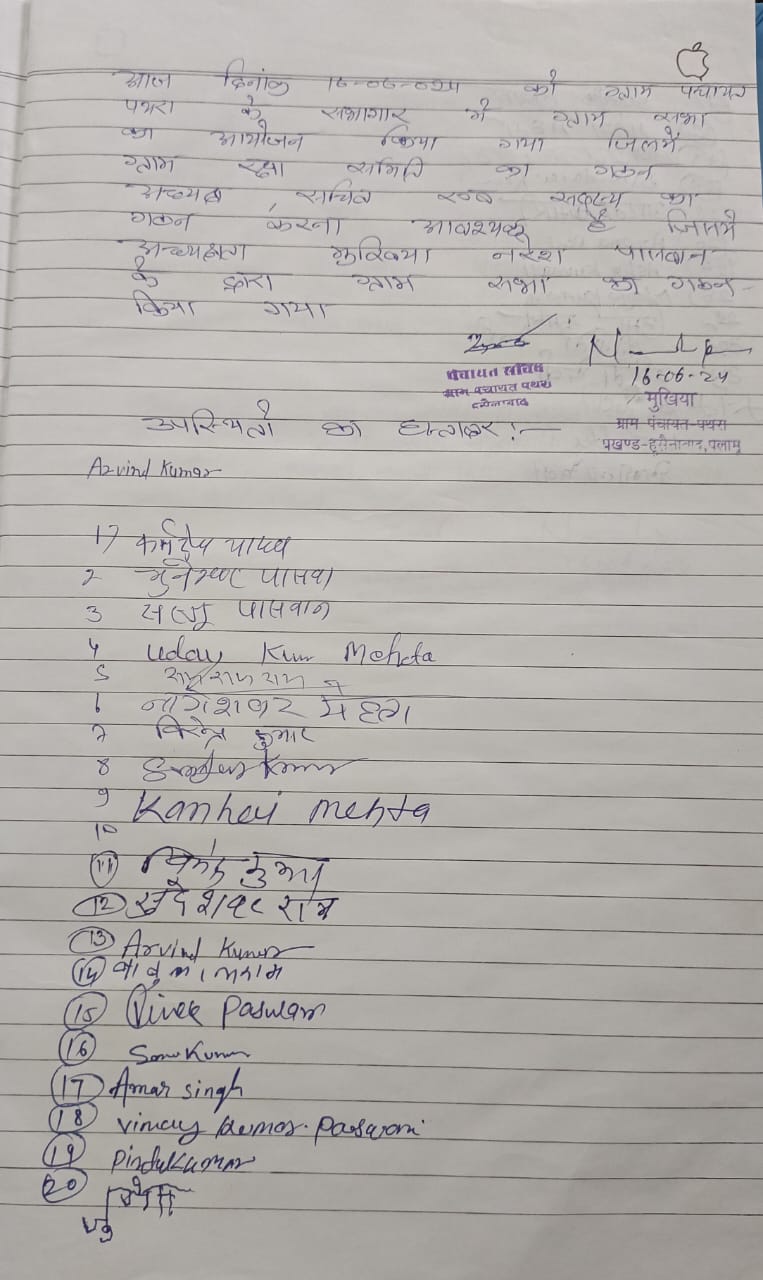 आज दिनांक 16-06-024 को ग्राम पंचायत
पथरा के सभागार में ग्राम सभा
का आयोजन किया गया जिसमें
ग्राम रक्षा समिति का गठन
अध्यक्ष सचिव एवं सदस्य का
गठन करना आवश्यक है जिसमें
अध्यक्षता मुखिया नरेश पासवान
के द्वारा ग्राम सभा का गठन
किया गया
पंचायत सचिव
ग्राम पंचायत पथरा
हुसैनाबाद
16-06-24
मुखिया
ग्राम पंचायत-पथरा
प्रखण्ड-हुसैनाबाद, पलामू
उपस्थिती का हस्ताक्षर :-
Arvind Kumar
1) कर्मदेव यादव
2 पासवा
3 पासवान
4 Uday Kum Mehta
5
6 नागेशवर मेहता
7 विरेन्द्र कुमार
8
9 Kanhai Mehta
10
11 कुमार
12 राम
13 Arvind Kumar
14
15 Vivek Paswan
16 Sonu Kumar
17 Amar singh
18 Vinay kumar Paswan
19 Pintu Kumar
20